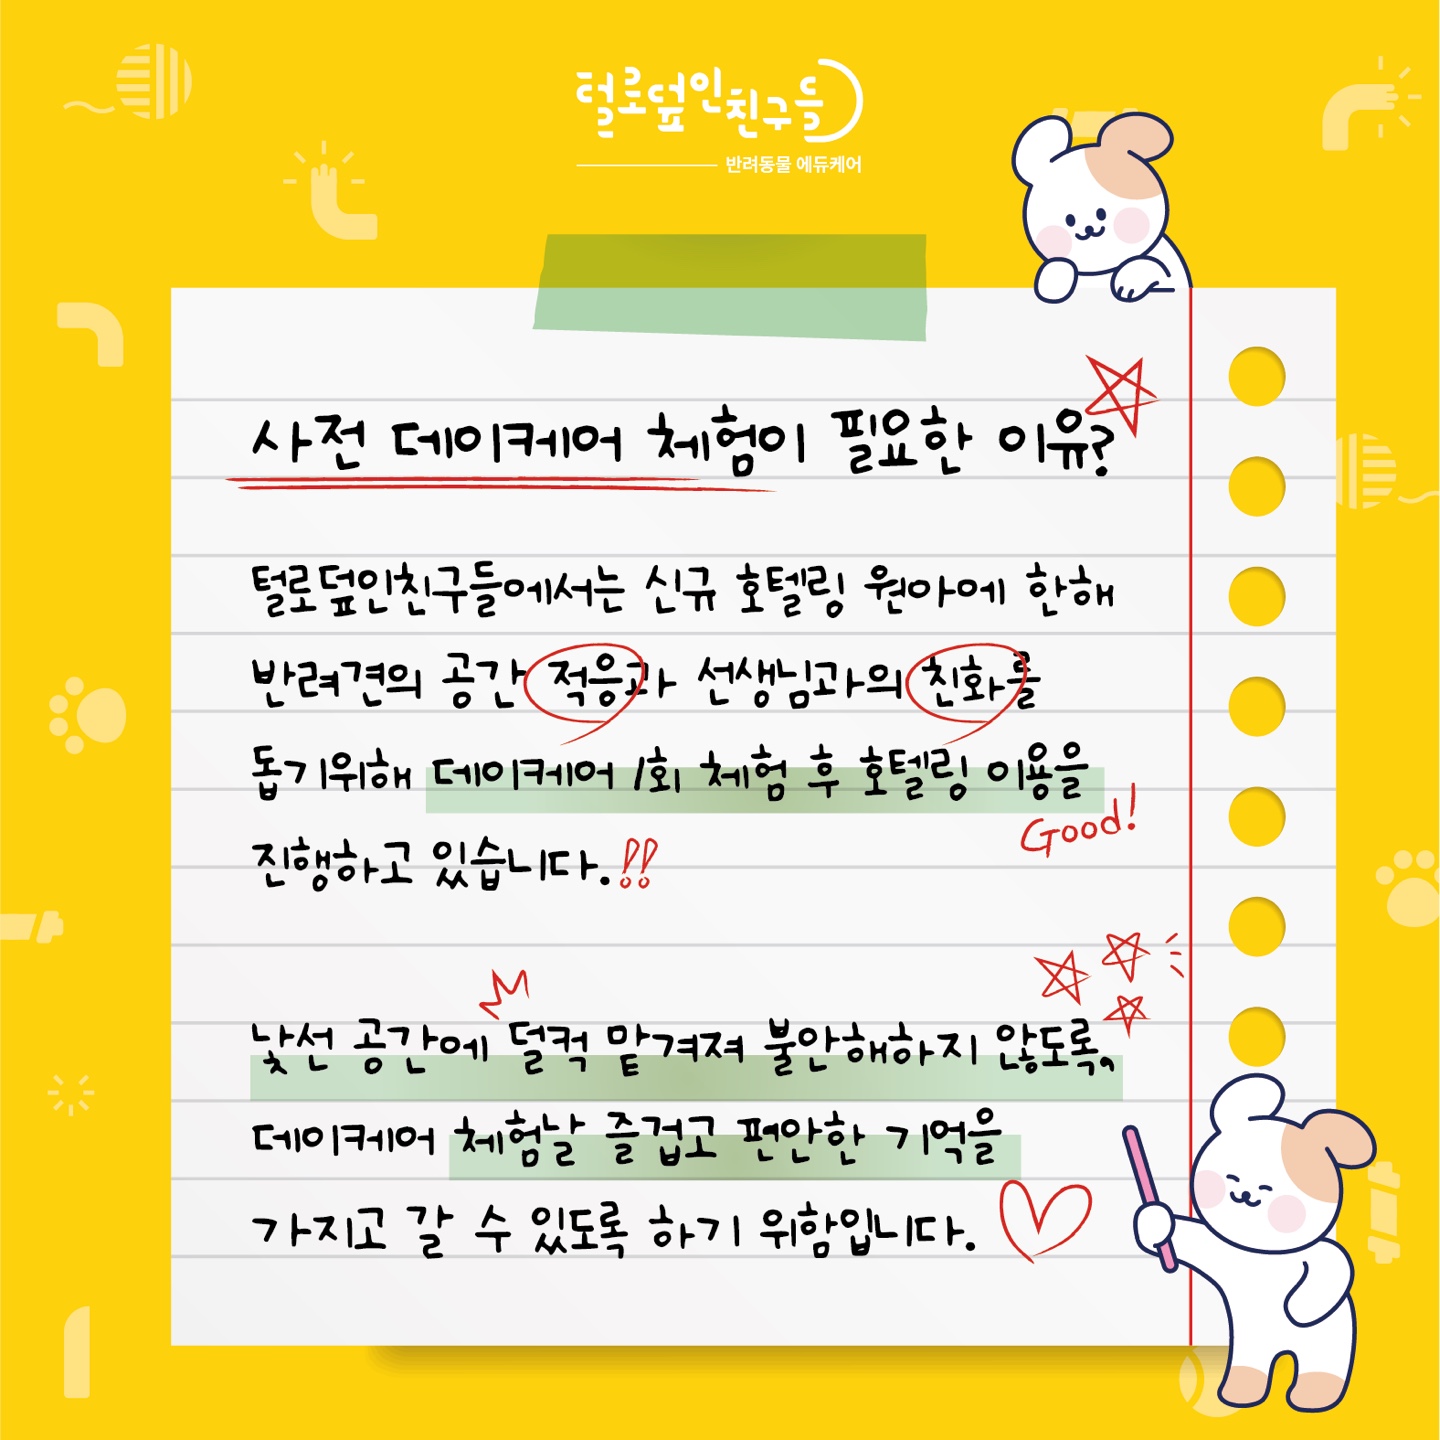 털로덮인친구들
반려동물 에듀케어
사전 데이케어 체험이 필요한 이유?
털로덮인친구들에서는 신규 호텔링 원아에 한해
반려견의 공간 적응과 선생님과의 친화를
돕기위해 데이케어 1회 체험 후 호텔링 이용을
Good!
진행하고 있습니다.!!
낯선 공간에 덜컥 맡겨져 불안해하지 않도록,
데이케어 체험날 즐겁고 편안한 기억을
가지고 갈 수 있도록 하기 위함입니다.